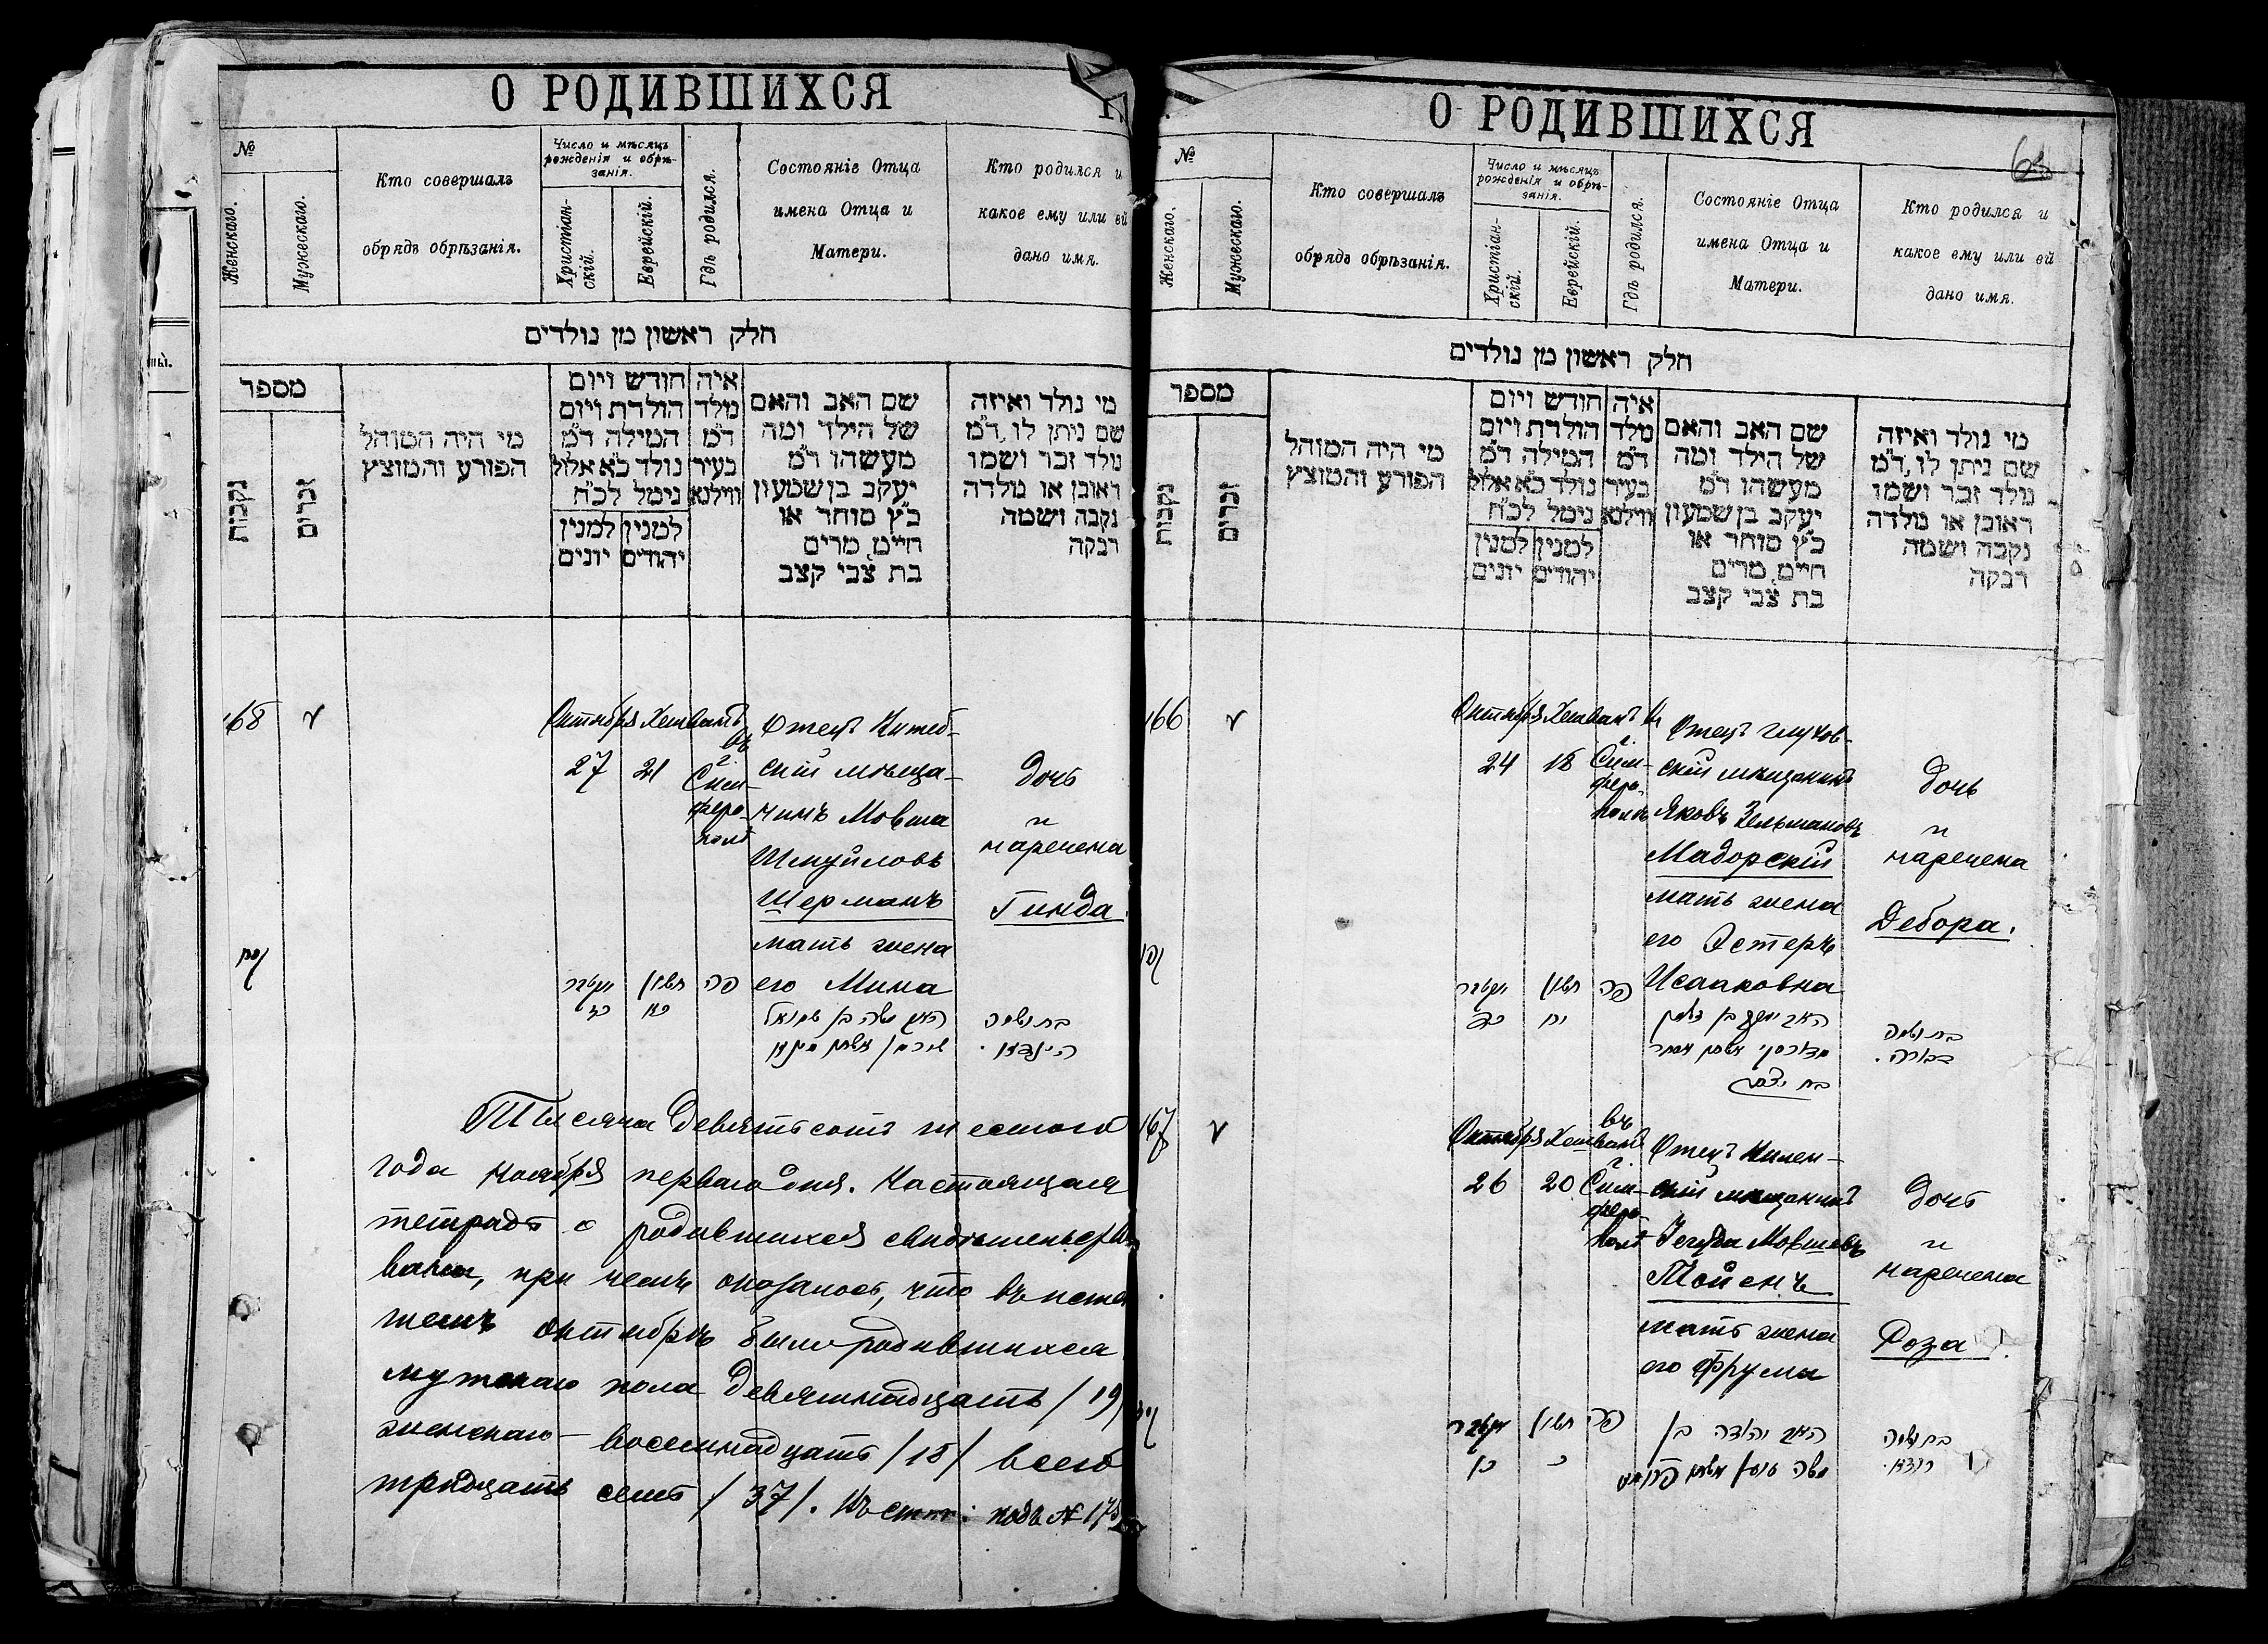 О РОДИВШИХСЯ
№
Женскаго.
Мужескаго.
Кто совершалъ
обрядъ обрѣзанія.
Число и мѣсяцъ
рожденія и обрѣ-
занія.
Христіан-
скій.
Еврейскій.
Гдѣ родился.
Состояніе Отца
имена Отца и
Матери.
Кто родился и
какое ему или ей
дано имя.
חלק ראשון מן נולדים
מספר
נקבות
זכרים
מי היה המוהל
הפורע והמוצץ
חודש ויום
הולדת ויום
המילה ד״מ
נולד כ״א אלול
נימל לכ״ח
למנין למנין
יהודים יונים
איה
נולד
ד״מ
בעיר
ווילנא
שם האב והאם
של הילד ומה
מעשהו ד״מ
יעקב בן שמעון
כ״ץ סוחר או
חייט, מרים
בת צבי קצב
מי נולד ואיזה
שם ניתן לו, ד״מ
נולד זכר ושמו
ראובן או נולדה
נקבה ושמה
רבקה
168
Октября Хешванъ
27 21
въ
г.
Сим-
феро-
полѣ
Отецъ Витеб-
скій мѣща-
нинъ Мовша
Шмуйловъ
Шерманъ
мать жена
его Мина
дочь
и
наречена
Гинда.
חשון פה
כא
האב משה בן שמואל
בת ושמה
הינדא.
Тысяча девятьсотъ шестого
года ноября перваго дня. Настоящая
тетрадь о родившихся свидѣтельство-
вана, при чемъ оказалось, что въ истек-
шемъ октябрѣ было родившихся
мужскаго пола девятнадцать /19/
женскаго восемнадцать /18/ всего
тридцать семь /37/. подъ №
О РОДИВШИХСЯ
63
№
Женскаго.
Мужескаго.
Кто совершалъ
обрядъ обрѣзанія.
Число и мѣсяцъ
рожденія и обрѣ-
занія.
Христіан-
скій.
Еврейскій.
Гдѣ родился.
Состояніе Отца
имена Отца и
Матери.
Кто родился и
какое ему или ей
дано имя.
חלק ראשון מן נולדים
מספר
נקבות
זכרים
מי היה המוהל
הפורע והמוצץ
חודש ויום
הולדת ויום
המילה ד״מ
נולד כ״א אלול
נימל לכ״ח
למנין למנין
יהודים יונים
איה
נולד
ד״מ
בעיר
ווילנא
שם האב והאם
של הילד ומה
מעשהו ד״מ
יעקב בן שמעון
כ״ץ סוחר או
חייט, מרים
בת צבי קצב
מי נולד ואיזה
שם ניתן לו, ד״מ
נולד זכר ושמו
ראובן או נולדה
נקבה ושמה
רבקה
166
Октября Хешванъ
24 18
г.
Сим-
феро-
полѣ
Отецъ глухов-
скій мѣщанинъ
Яковъ Зельмановъ
Мадорскій
мать жена
его Эстеръ
Исааковна
дочь
и
наречена
Дебора.
חשון פה
יח
בת ושמה
דבורה.
167
Октября Хешванъ
26 20
въ
г.
Сим-
феро-
полѣ
Отецъ Вилен-
скій мѣщанинъ
Іегуда Мовшовъ
мать жена
его Фрума
дочь
и
наречена
Роза.
חשון פה
כ
האב יהודה בן
משה
בת ושמה